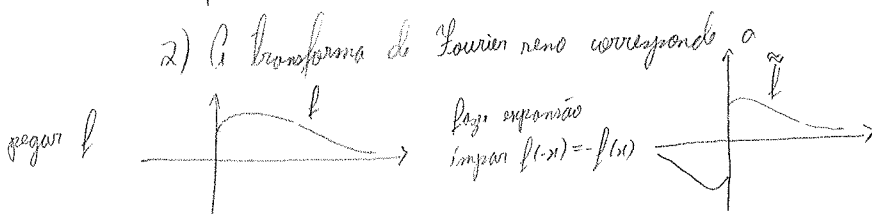 2) A transforma de Fourier seno corresponde a
pegar f
f
fazer expansão
ímpar f(-x) = -f(x)
f̃